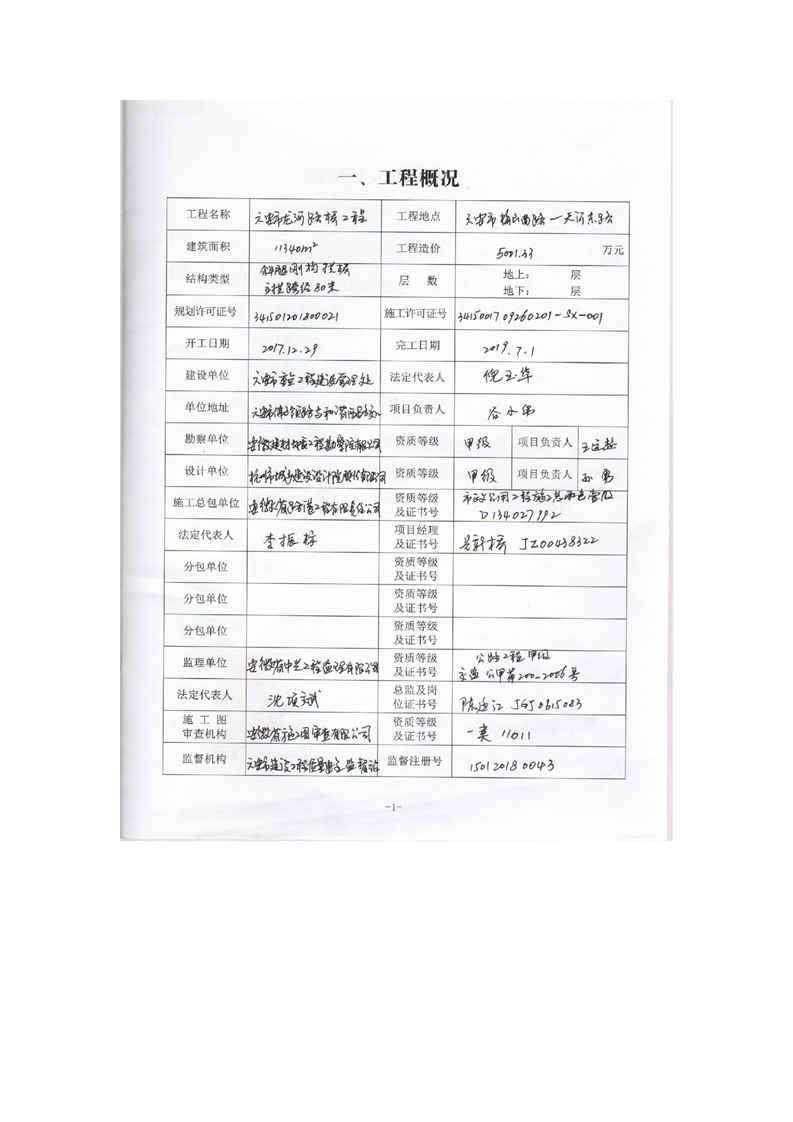 一、工程概况
工程名称 六安市龙河路桥工程 工程地点 六安市梅山南路—天河东路
建筑面积 11340m² 工程造价 5001.33 万元
结构类型 斜腿刚构拱桥
主拱跨径80米
层 数 地上： 层
地下： 层
规划许可证号 341501201800021 施工许可证号 3415001709260201-SX-001
开工日期 2017.12.29 完工日期 2019.7.1
建设单位 六安市重点工程建设管理处 法定代表人 倪玉华
单位地址 六安市 项目负责人
勘察单位 资质等级 甲级 项目负责人
设计单位 杭州市城乡建设设计院股份有限公司 资质等级 甲级 项目负责人 孙勇
施工总包单位 安徽省路港工程有限责任公司 资质等级
及证书号
市政公用工程施工总承包壹级
D134027992
法定代表人 李振标 项目经理
及证书号
JZ00438322
分包单位 资质等级
及证书号
分包单位 资质等级
及证书号
分包单位 资质等级
及证书号
监理单位 安徽省中兴工程监理有限公司 资质等级
及证书号
公路工程甲级
交监公甲第200-2006号
法定代表人 沈项斌 总监及岗
位证书号
JGJ0615083
施 工 图
审查机构
安徽省施工图审查有限公司 资质等级
及证书号
一类 11011
监督机构 六安市建设工程质量安全监督站 监督注册号 150120180043
-1-